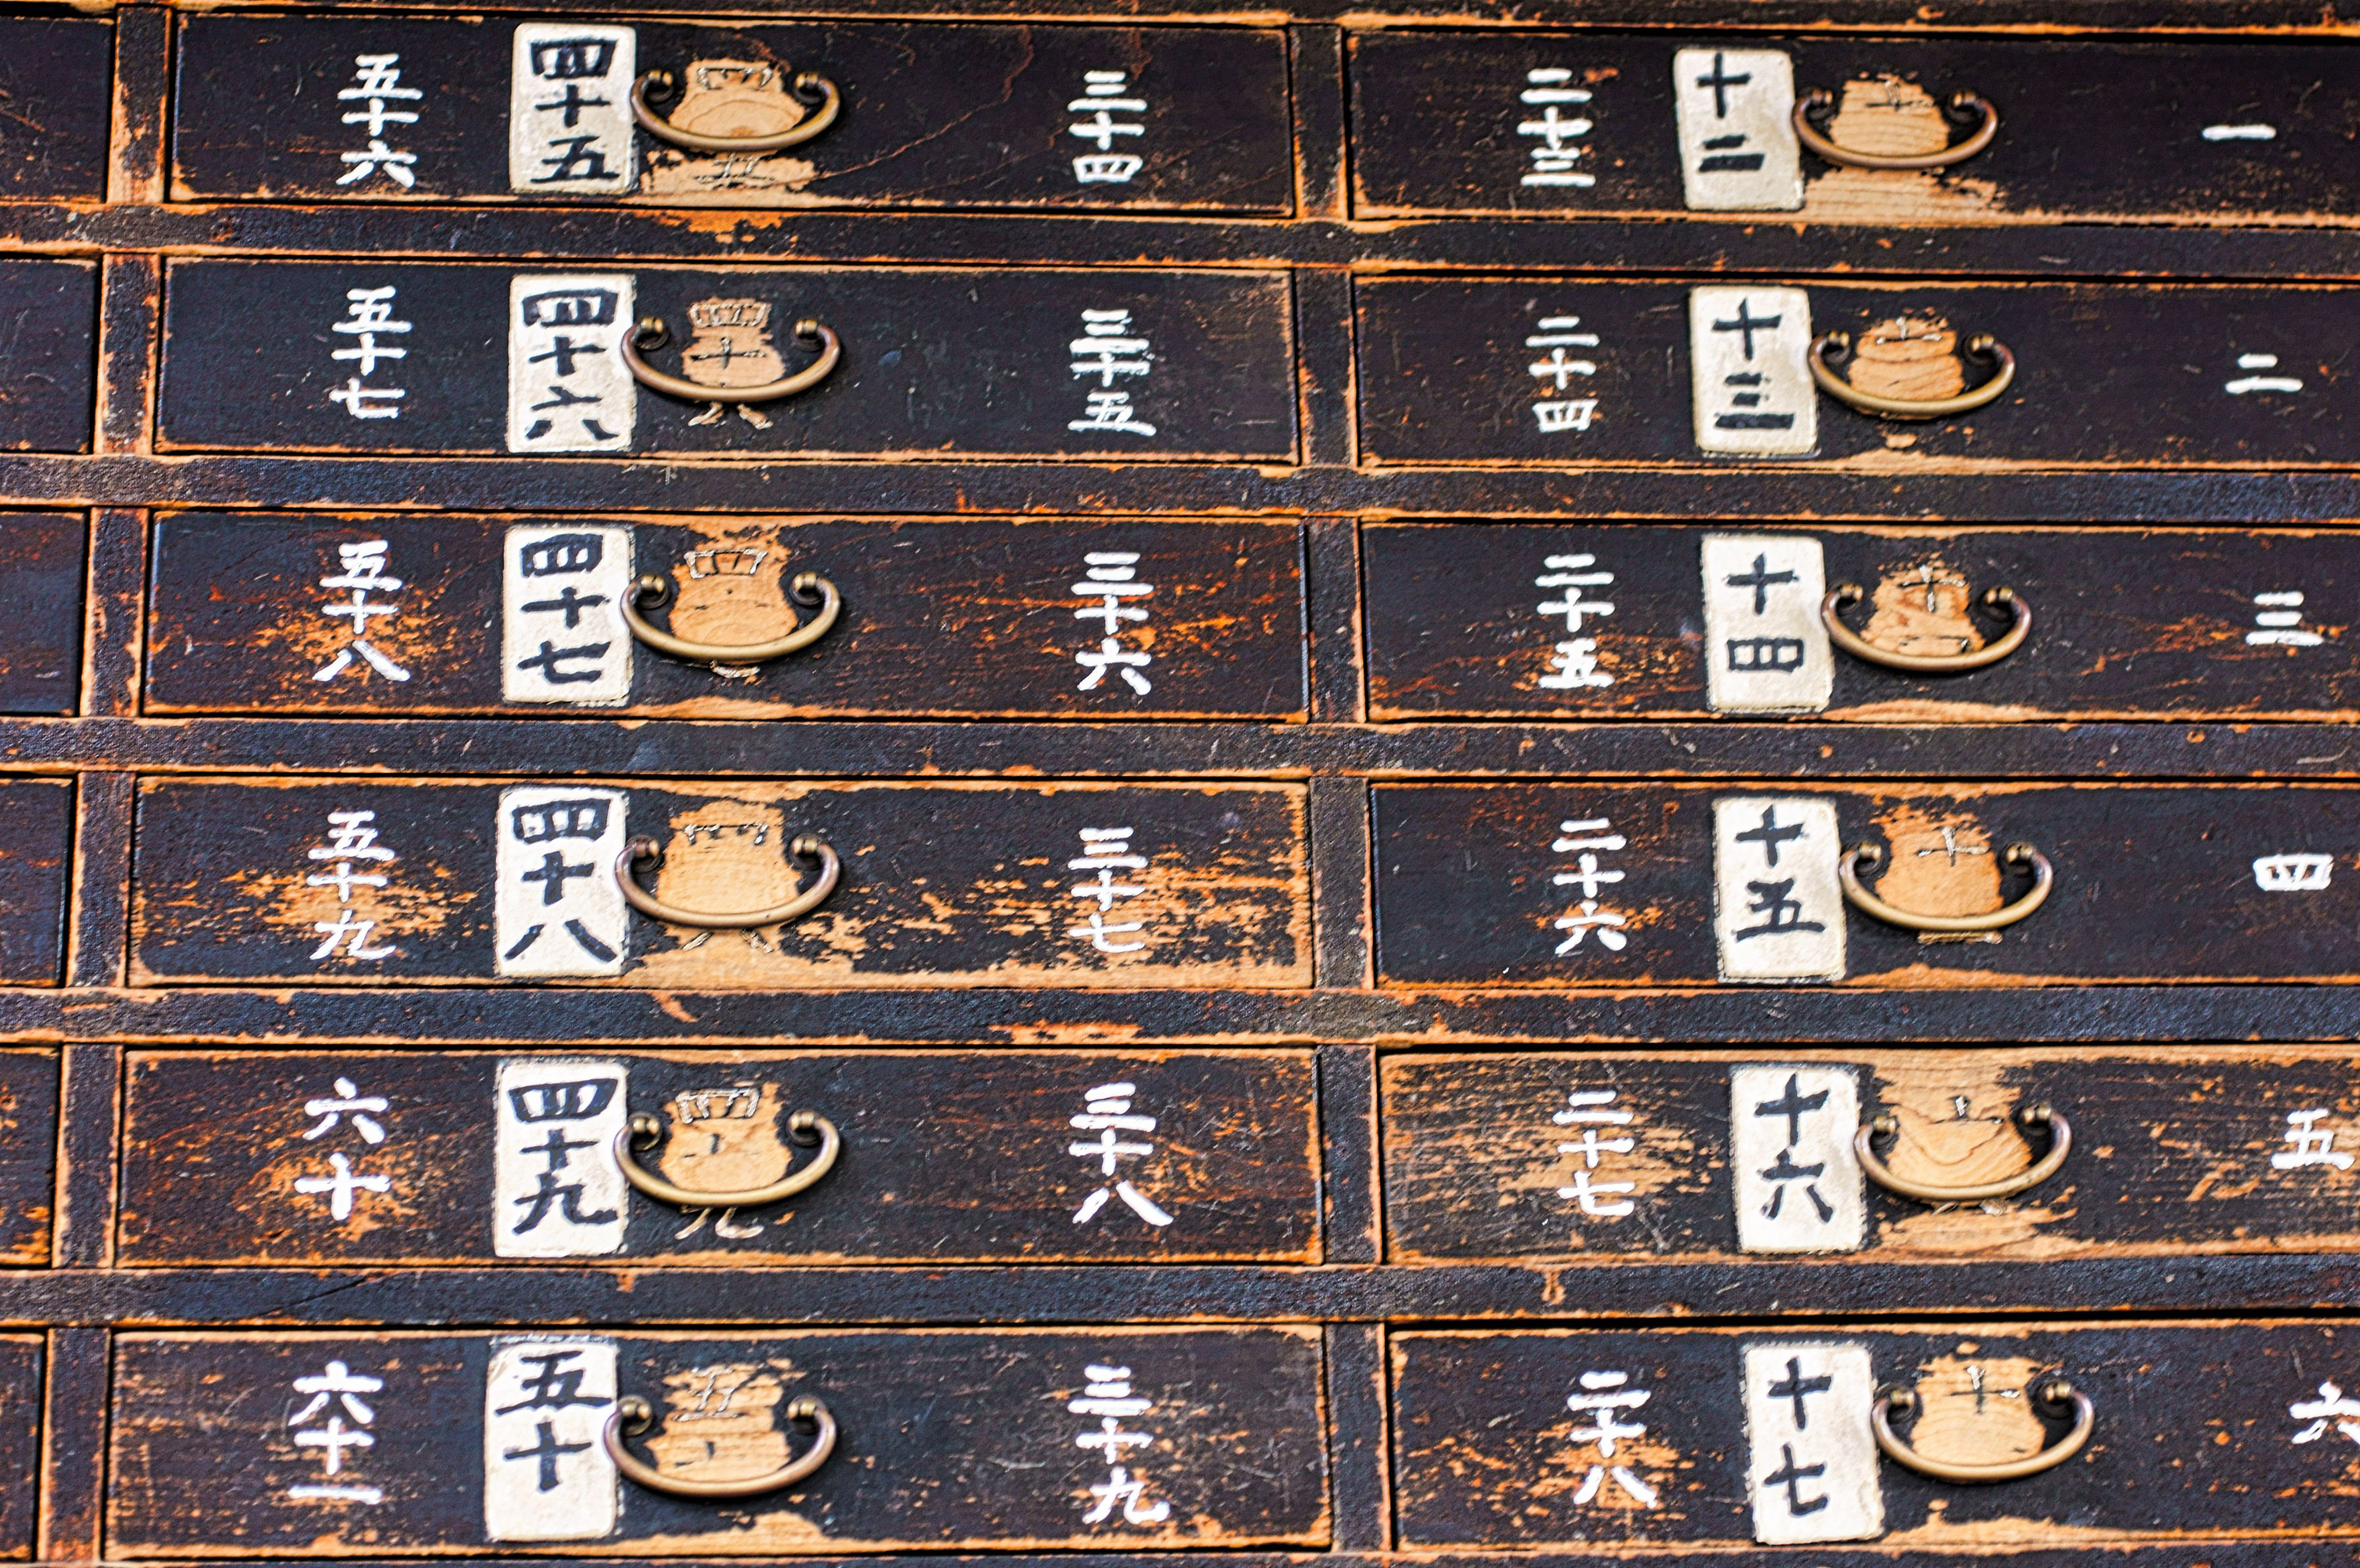 五十六
四十五
三十四
二十三
十二
一
五十七
四十六
三十五
二十四
十三
二
五十八
四十七
三十六
二十五
十四
三
五十九
四十八
三十七
二十六
十五
四
六十
四十九
三十八
二十七
十六
五
六十一
五十
三十九
二十八
十七
六